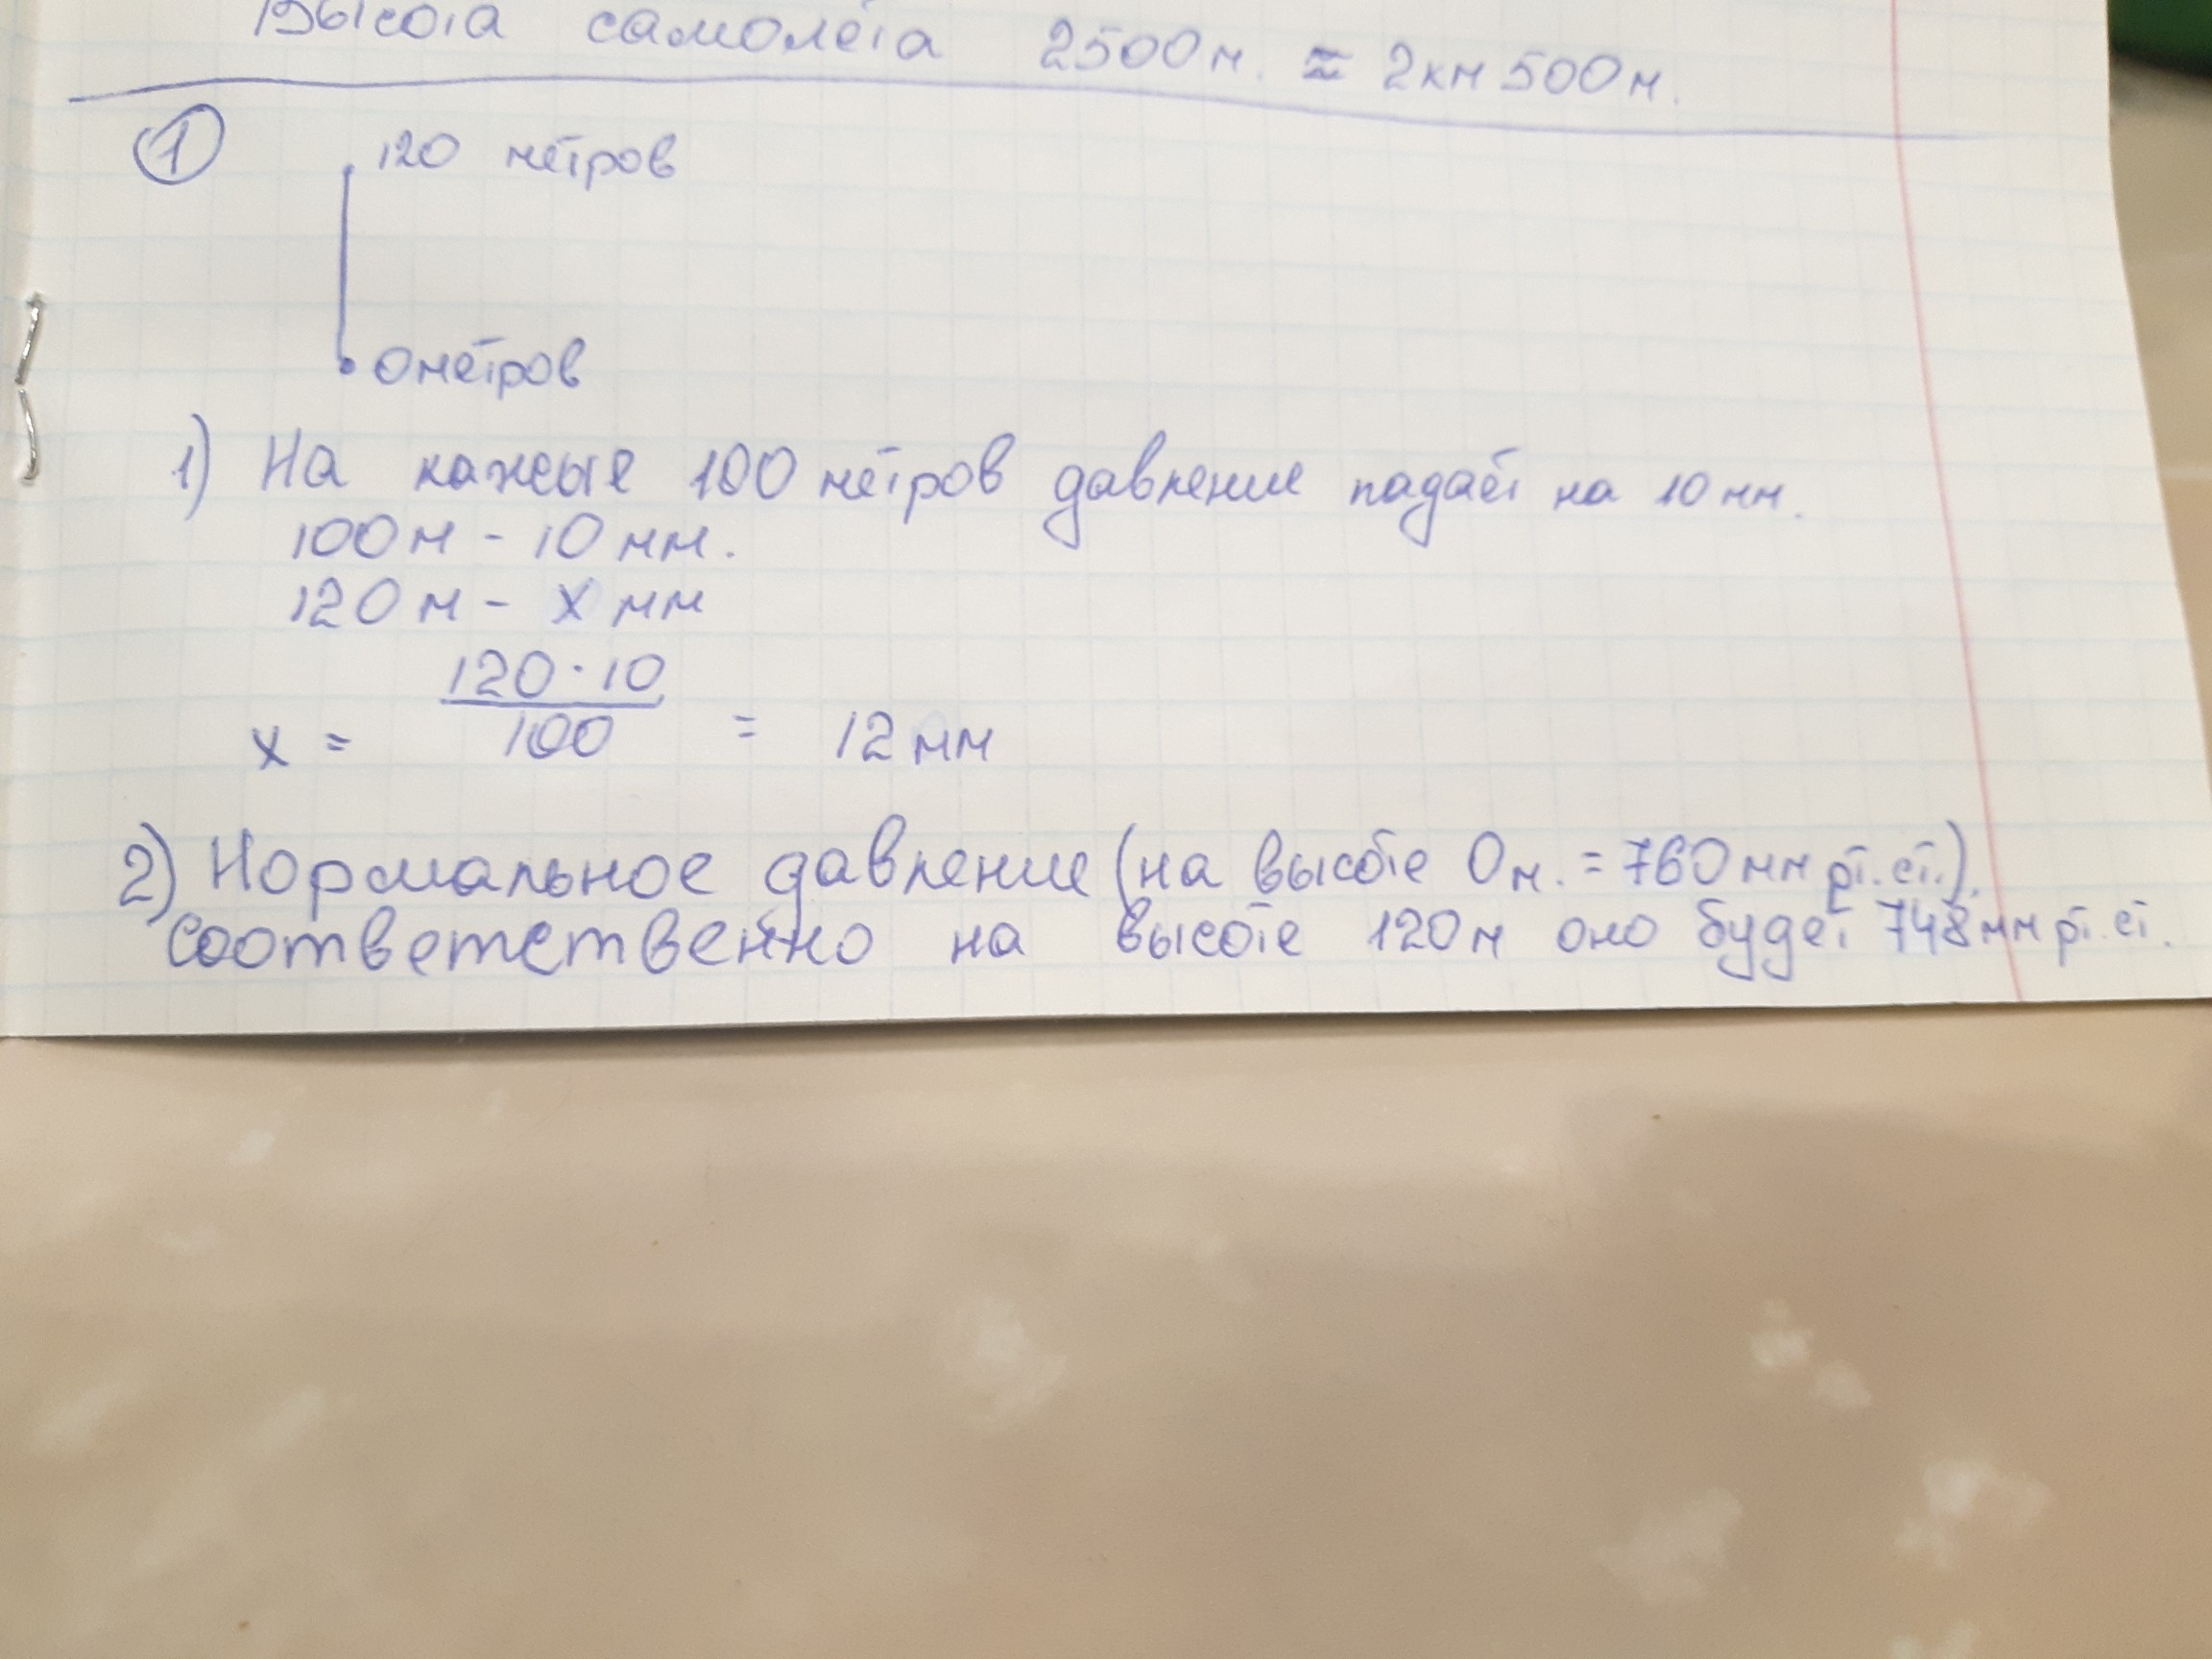 Высота самолёта 2500м. ≈ 2км 500м.
1
120 метров
0 метров
1) На кажсые 100 метров давление падает на 10 мм.
100м - 10 мм.
120м - x мм
x = 120·10/100 = 12 мм
2) Нормальное давление (на высоте 0м. = 760 мм рт. ст.).
соответственно на высоте 120м оно будет 748 мм рт. ст.